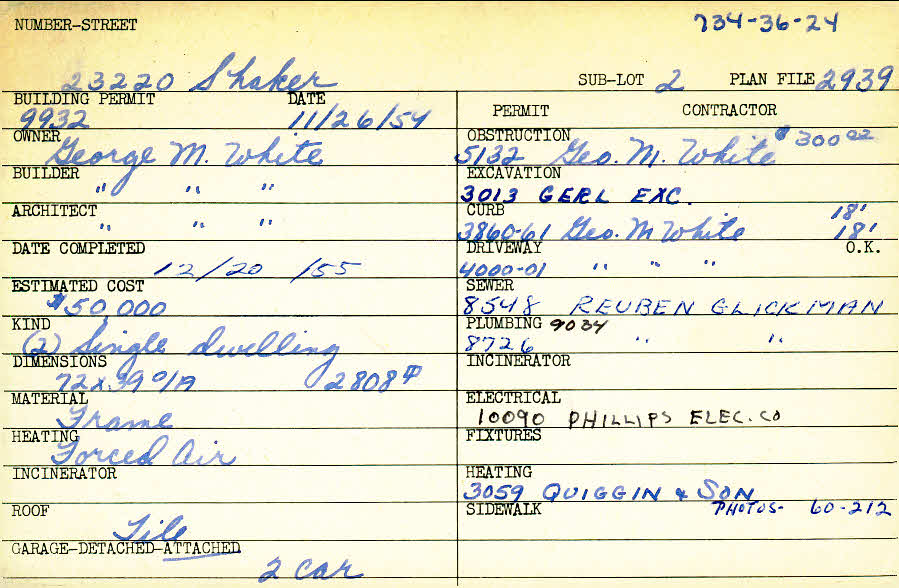 NUMBER-STREET
734-36-24
23220 Shaker
SUB-LOT 2 PLAN FILE 2939
BUILDING PERMIT DATE
9932 11/26/54
OWNER
George M. White
BUILDER
" " "
ARCHITECT
" " "
DATE COMPLETED
12/20/55
ESTIMATED COST
$50,000
KIND
(2) Single dwelling
DIMENSIONS
72 x 39 O/A 2808#
MATERIAL
Frame
HEATING
Forced Air
INCINERATOR
ROOF
Tile
GARAGE-DETACHED-ATTACHED
2 car
PERMIT CONTRACTOR
OBSTRUCTION
5132 Geo. M. White $300 00
EXCAVATION
3013 GERL EXC.
CURB 18'
3860-61 Geo. M White 18'
DRIVEWAY O.K.
4000-01 " " "
SEWER
8548 REUBEN GLICKMAN
PLUMBING 9034
8726 " "
INCINERATOR
ELECTRICAL
10090 PHILLIPS ELEC. CO
FIXTURES
HEATING
3059 QUIGGIN & SON
SIDEWALK PHOTOS- 60-212